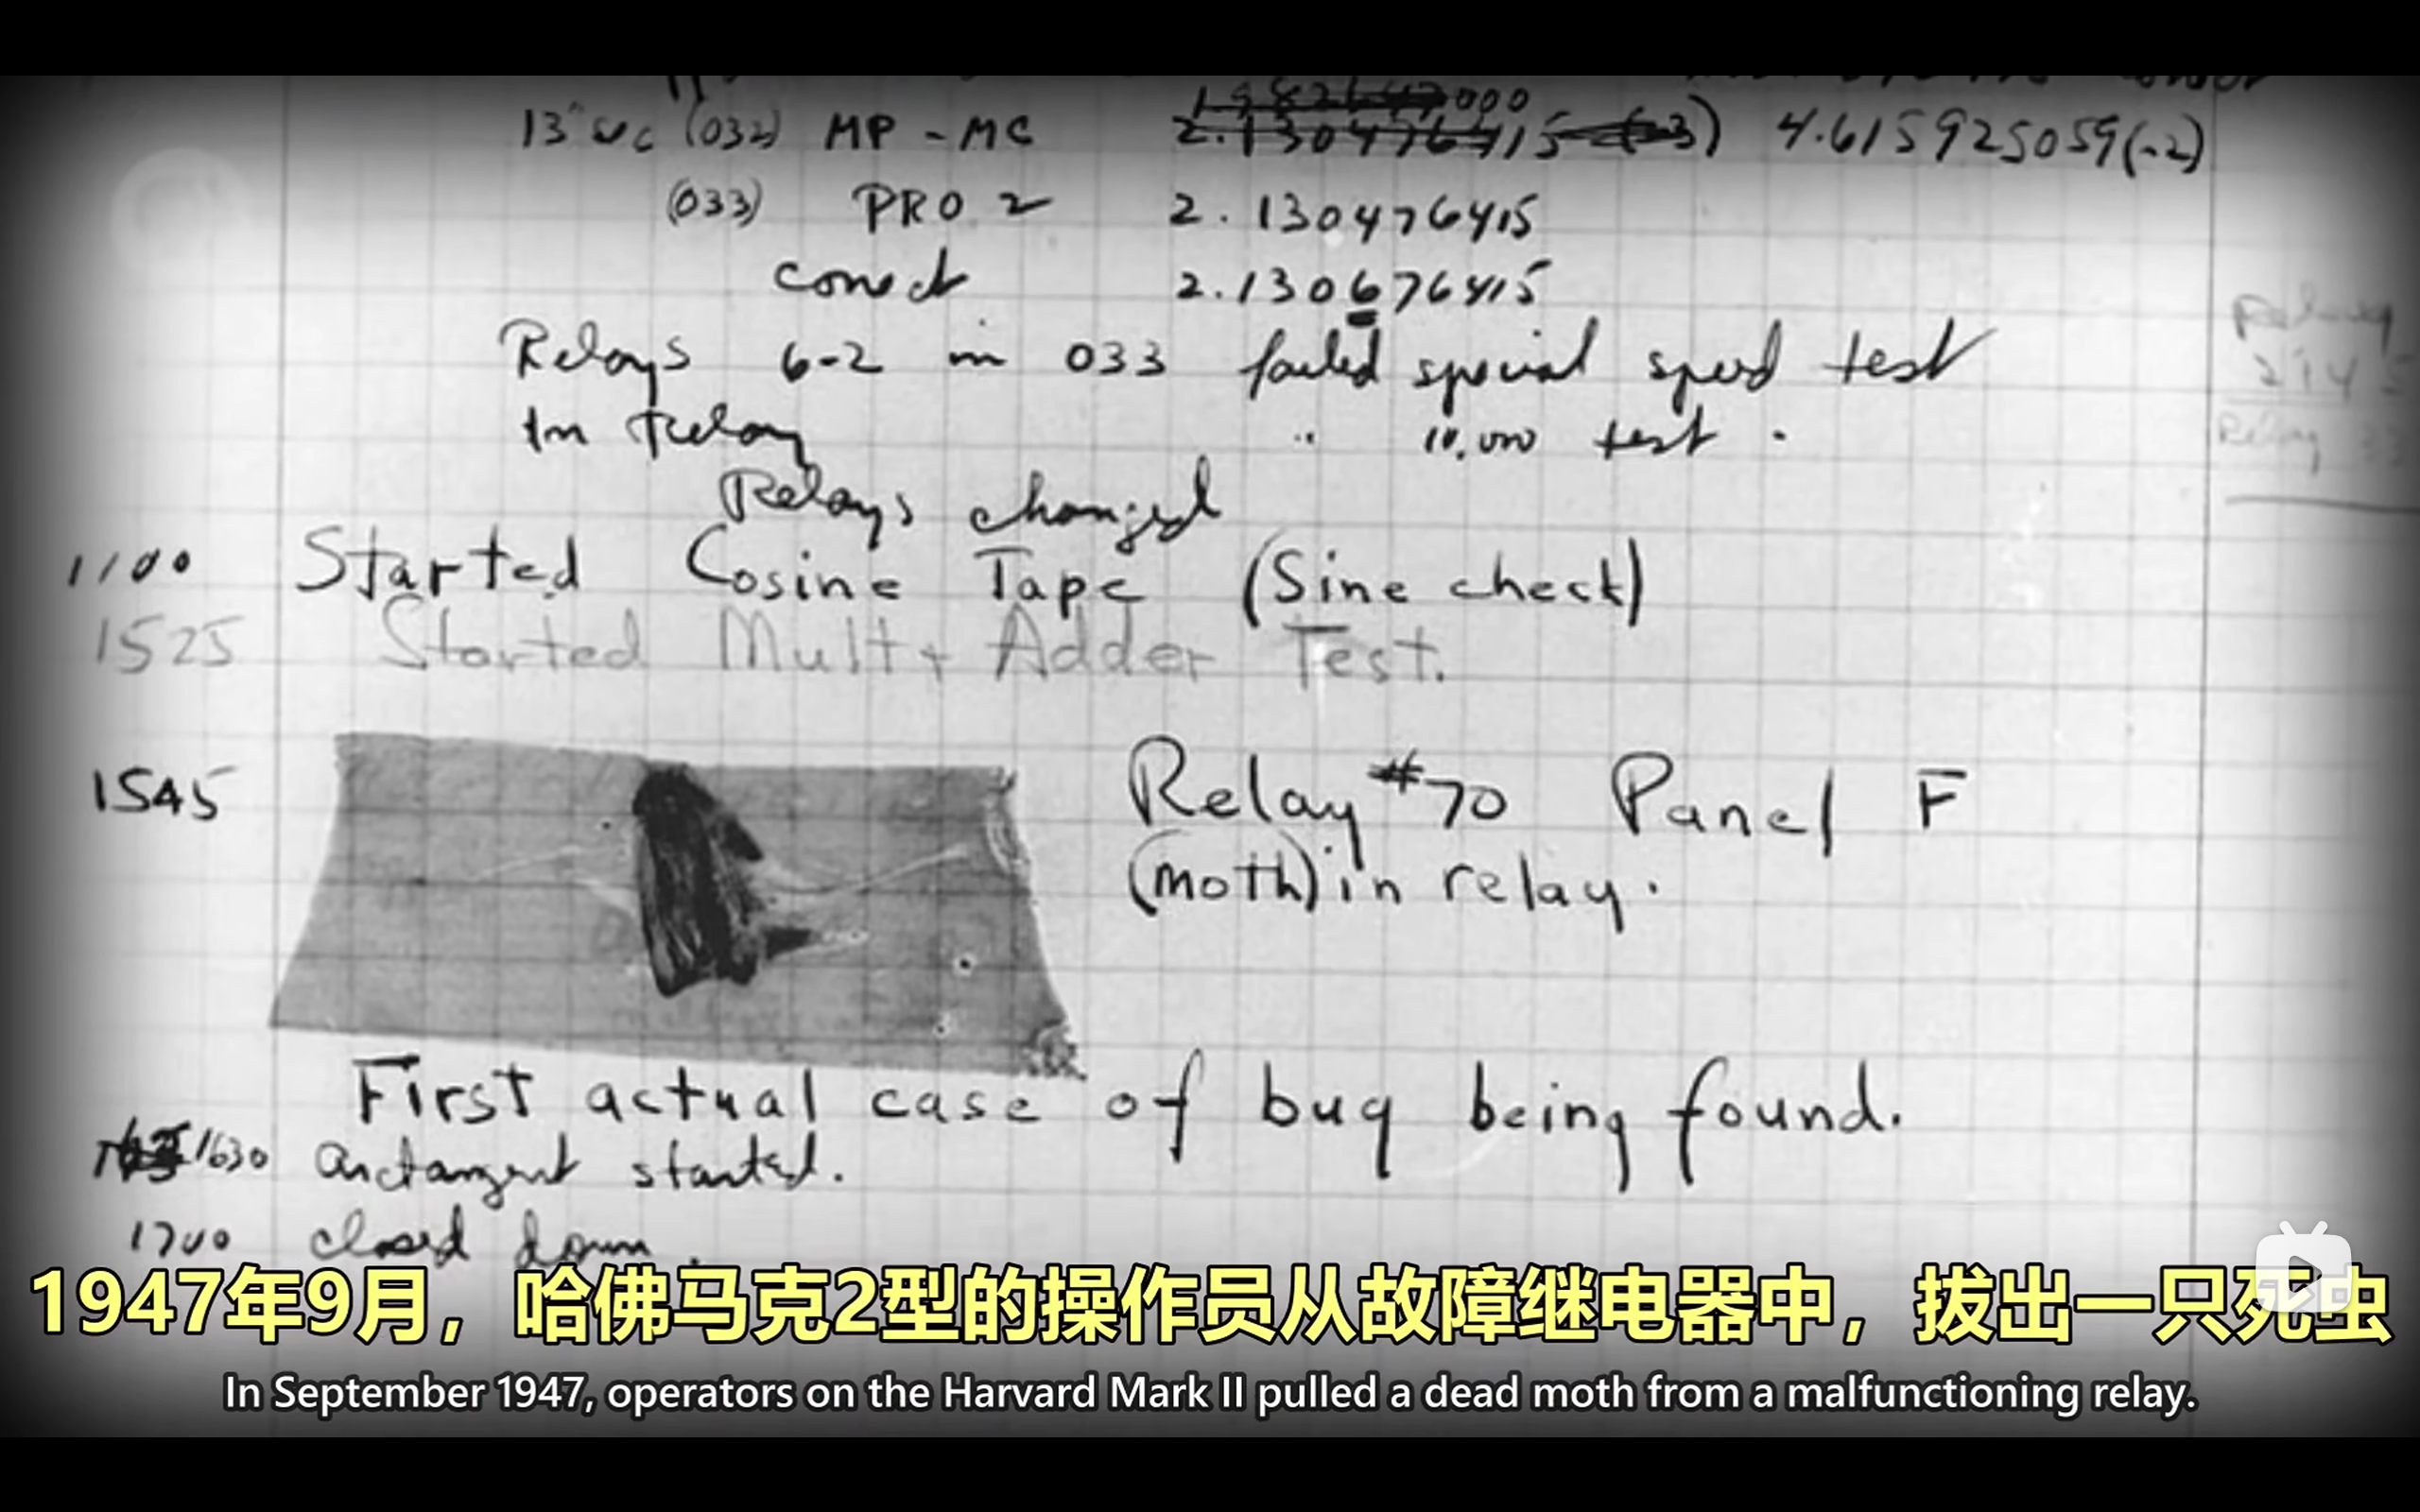 13" uc (032) MP - MC 2.130476415 (-3) 4.615925059(-2)
(033) PRO 2 2.130476415
correct 2.130676415
Relays 6-2 in 033 failed special speed test
In Relay " 10,000 test .
Relays changed
1100 Started Cosine Tape (Sine check)
1525 Started Mult + Adder Test.
1545 Relay #70 Panel F
(moth) in relay.
First actual case of bug being found.
1630 arctangent started.
1700 closed down.
Relay
2145
Relay
1947年9月，哈佛马克2型的操作员从故障继电器中，拔出一只死虫
In September 1947, operators on the Harvard Mark II pulled a dead moth from a malfunctioning relay.